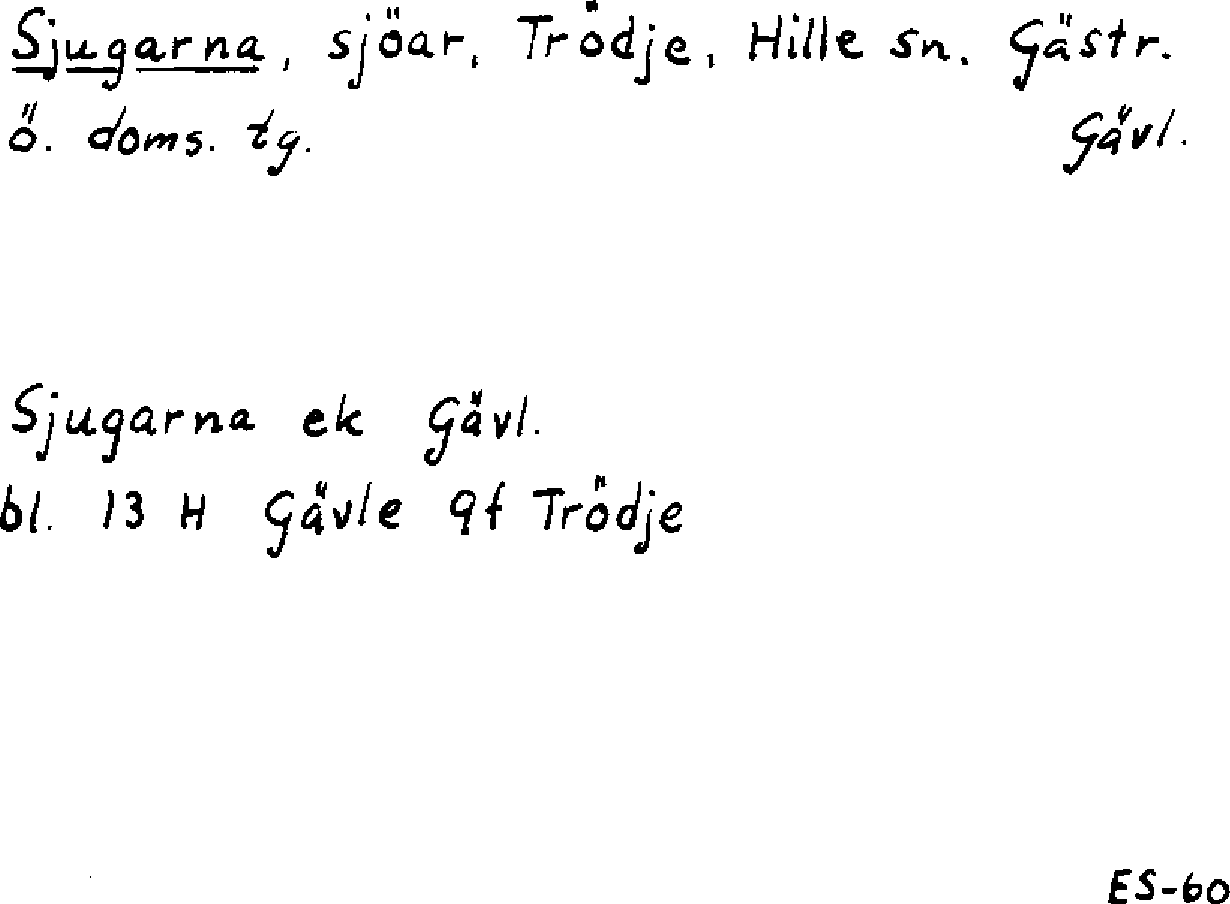 Sjugarna, sjöar, Trödje, Hille sn. Gästr.
ö. doms. tg. Gävl.
Sjugarna ek Gävl.
bl. 13 H Gävle 9f Trödje
ES-60